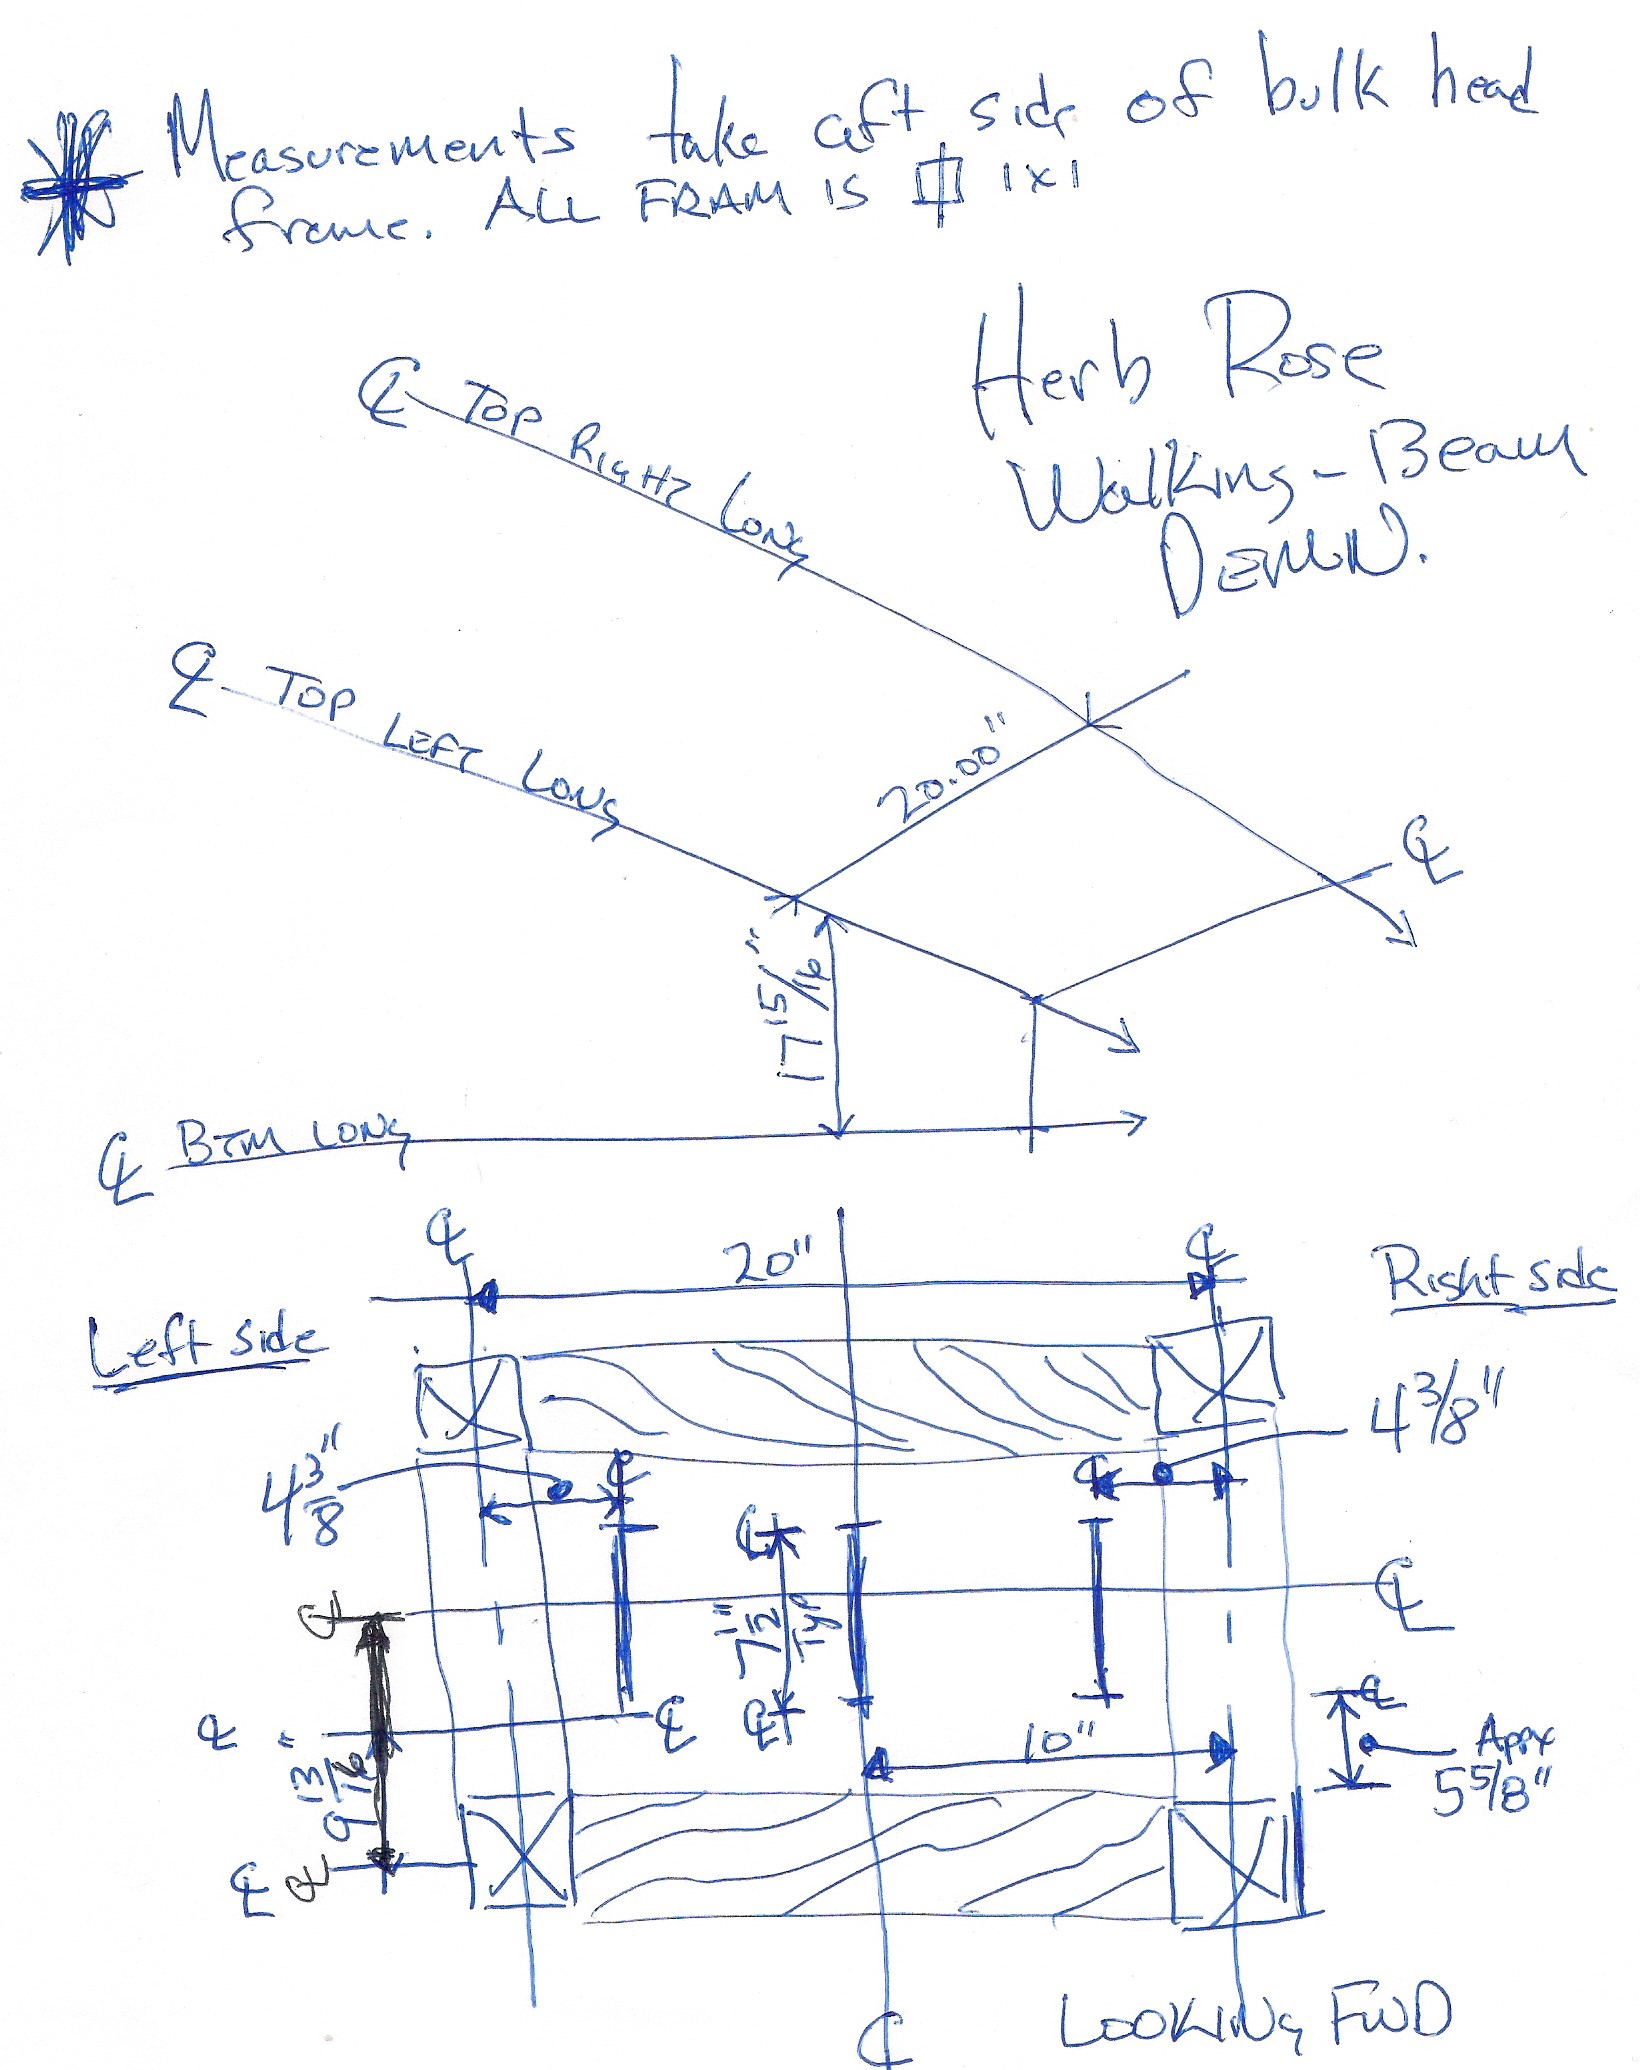 Measurements take aft side of bulk head
frame. ALL FRAM IS 1x1
Herb Rose
Walking-Beam
℄ TOP RIGHT LONG
℄ TOP LEFT LONG
20.00"
℄
17 15/16"
℄ BTM LONG
℄
20"
℄
Right side
Left side
4 3/8"
4 3/8"
℄
℄
℄
7 1/2" TYP
℄
℄
℄
℄
℄
℄
10"
℄
Appx
5 5/8"
9 13/16
℄
℄
℄
LOOKING FWD